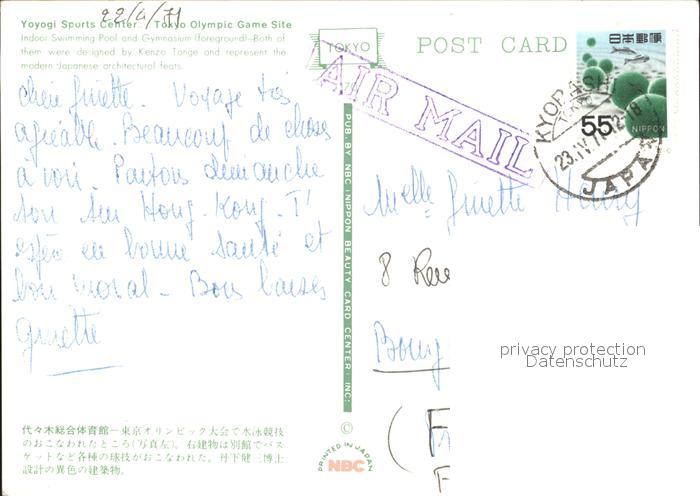 22/4/71
Yoyogi Sports Center Tokyo Olympic Game Site
Indoor Swimming Pool and Gymnasium (foreground)—Both of
them were designed by Kenzo Tange and represent the
modern Japanese architectural feats.
TOKYO
POST CARD
AIR MAIL
日本郵便
55
NIPPON
KYOBASHI
23.IV.71
JAPAN
chère Ginette. Voyage très
agréable. Beaucoup de choses
à voir. Partons dimanche
son sur Hong-Kong. T'
espère en bonne santé et
bon moral - Bons baisers
Ginette
PUB. BY NBC (NIPPON BEAUTY CARD CENTER, INC.)
Melle Ginette Henry
8 Rue
Bourg
(F
F
privacy protection
Datenschutz
代々木総合体育館—東京オリンピック大会で水泳競技
のおこなわれたところ(写真左)。右建物は別館でバス
ケットなど各種の球技がおこなわれた。丹下健三博士
設計の異色の建築物。
©
PRINTED IN JAPAN
NBC